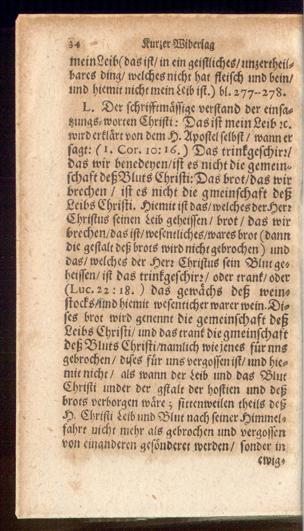 34 Kurtzer Widerlag
mein Leib (das ist/ in ein geistliches/ unzertheil-
bares ding/ welches nicht hat fleisch und bein/
und hiemit nicht mein Leib ist.) bl. 277--278.
L. Der schrifftmässige verstand der einsa-
tzungs-worten Christi: Das ist mein Leib ꝛc.
wird erklärt von dem H. Apostel selbst/ wann er
sagt: (1. Cor. 10:16.) Das trinkgeschirr/
das wir benedeyen/ ist es nicht die gemein-
schaft deß Bluts Christi: Das brot/ das wir
brechen/ ist es nicht die gmeinschaft deß
Leibs Christi. Hiemit ist das/ welches der Herr
Christus seinen Leib geheissen/ brot/ das wir
brechen/ das ist/ wesentliches/ wares brot (dann
die gestalt deß brots wird nicht gebrochen) und
das/ welches der Herr Christus sein Blut ge-
heissen/ ist das trinkgeschirr/ oder trank/ oder
(Luc. 22:18.) das gewächs deß wein-
stocks/ und hiemit wesentlicher warer wein. Di-
ses brot wird genennt die gemeinschaft deß
Leibs Christi/ und das trank die gmeinschaft
deß Bluts Christi/ namlich wie jenes für uns
gebrochen/ dises für uns vergossen ist/ und hie-
mit nicht/ als wann der Leib und das Blut
Christi under der gstalt der hostien und deß
brots verborgen wäre; sittenweilen theils deß
H. Christi Leib und Blut nach seiner Himmel-
fahrt nicht mehr als gebrochen und vergossen
von einanderen gesönderet werden/ sonder in
ewig-